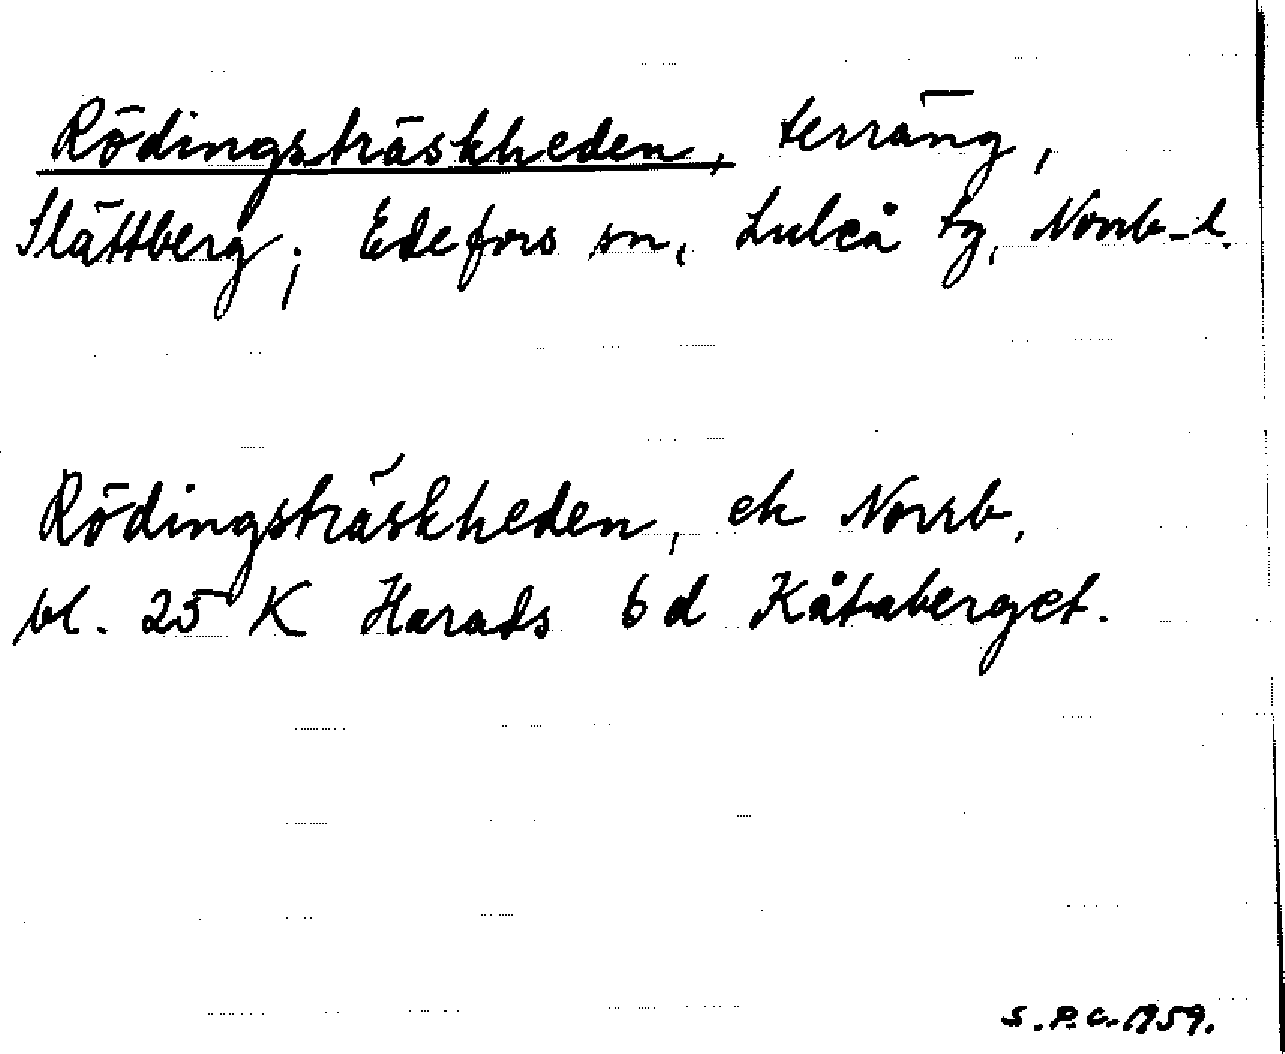 Rödingsträskheden, terräng,
Slättberg; Edefors sn, Luleå tg, Norrb-l.
Rödingsträskheden, ek Norrb,
bl. 25 K Harads 6 d Kåtaberget.
S.P.C. 1959.